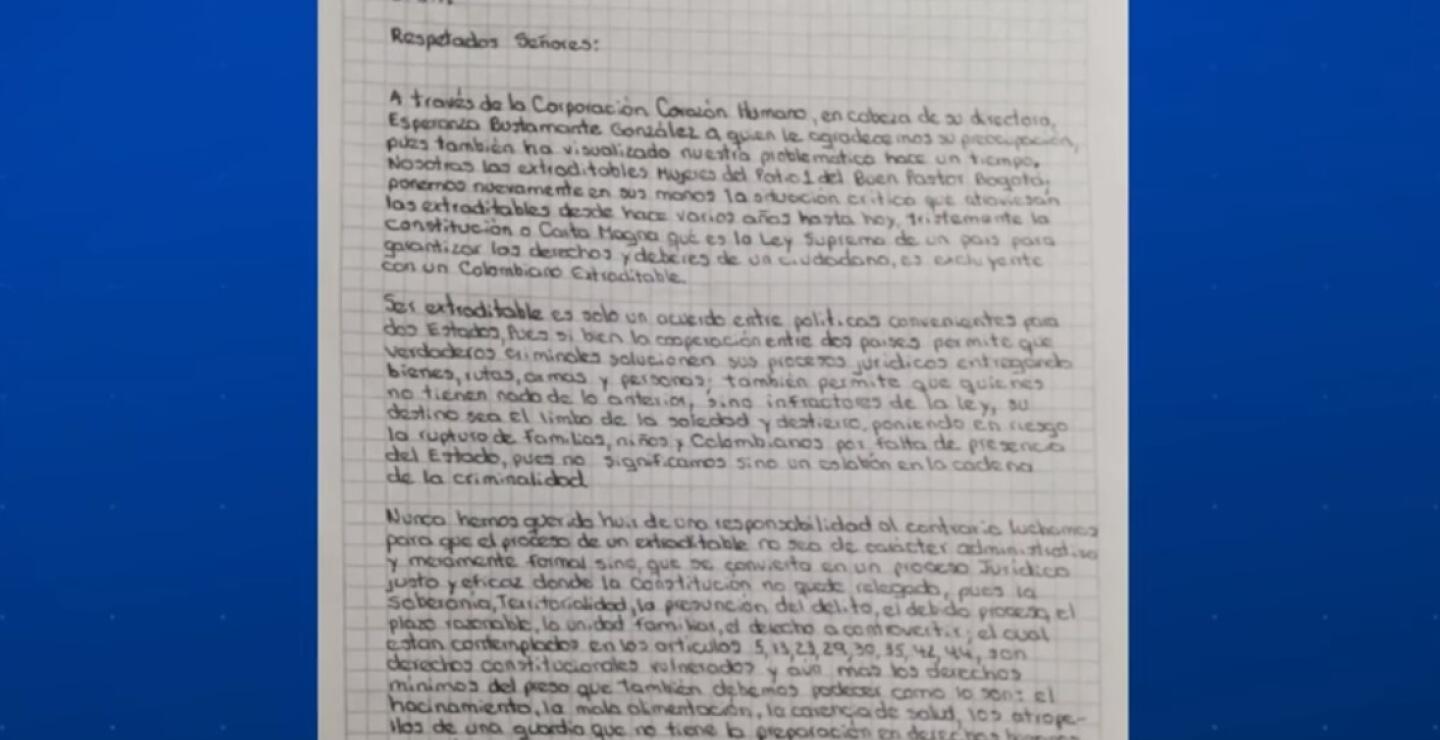 Respetados Señores:
A través de la Corporación Corazón Humano, en cabeza de su directora,
Esperanza Bustamante González a quien le agradecemos su preocupación,
pues también ha visualizado nuestra problematica hace un tiempo.
Nosotras las extraditables Mujeres del Patio 1 del Buen Pastor Bogotá,
ponemos nuevamente en sus manos la situación critica que atraviesan
las extraditables desde hace varios años hasta hoy, tristemente la
Constitución o Carta Magna que es la Ley Suprema de un pais para
garantizar los derechos y deberes de un ciudadano, es excluyente
con un Colombiano Extraditable.
Ser extraditable es solo un acuerdo entre politicas convenientes para
dos Estados, Pues si bien la cooperación entre dos paises permite que
verdaderos criminales solucionen sus procesos juridicos entregando
bienes, rutas, armas y personas; también permite que quienes
no tienen nada de lo anterior, sino infractores de la ley, su
destino sea el limbo de la soledad y destierro, poniendo en riesgo
la ruptura de familias, niños y Colombianos por falta de presencia
del Estado, pues no significamos sino un eslabón en la cadena
de la criminalidad
Nunca hemos querido huir de una responsabilidad al contrario luchamos
para que el proceso de un extraditable no sea de carácter administrativo
y meramente formal sino, que se convierta en un proceso Juridico
justo y eficaz donde la Constitución no quede relegada, pues la
soberania, Territorialidad, la presunción del delito, el debido proceso, el
plazo razonable, la unidad familiar, el derecho a controvertir; el cual
estan contemplados en los articulos 5, 13, 23, 29, 30, 35, 42, 44, son
derechos constitucionales vulnerados y aún mas los derechos
minimos del preso que también debemos padecer como lo son: el
hacinamiento, la mala alimentación, la carencia de salud, los atrope-
llos de una guardia que no tiene la preparación en derechos